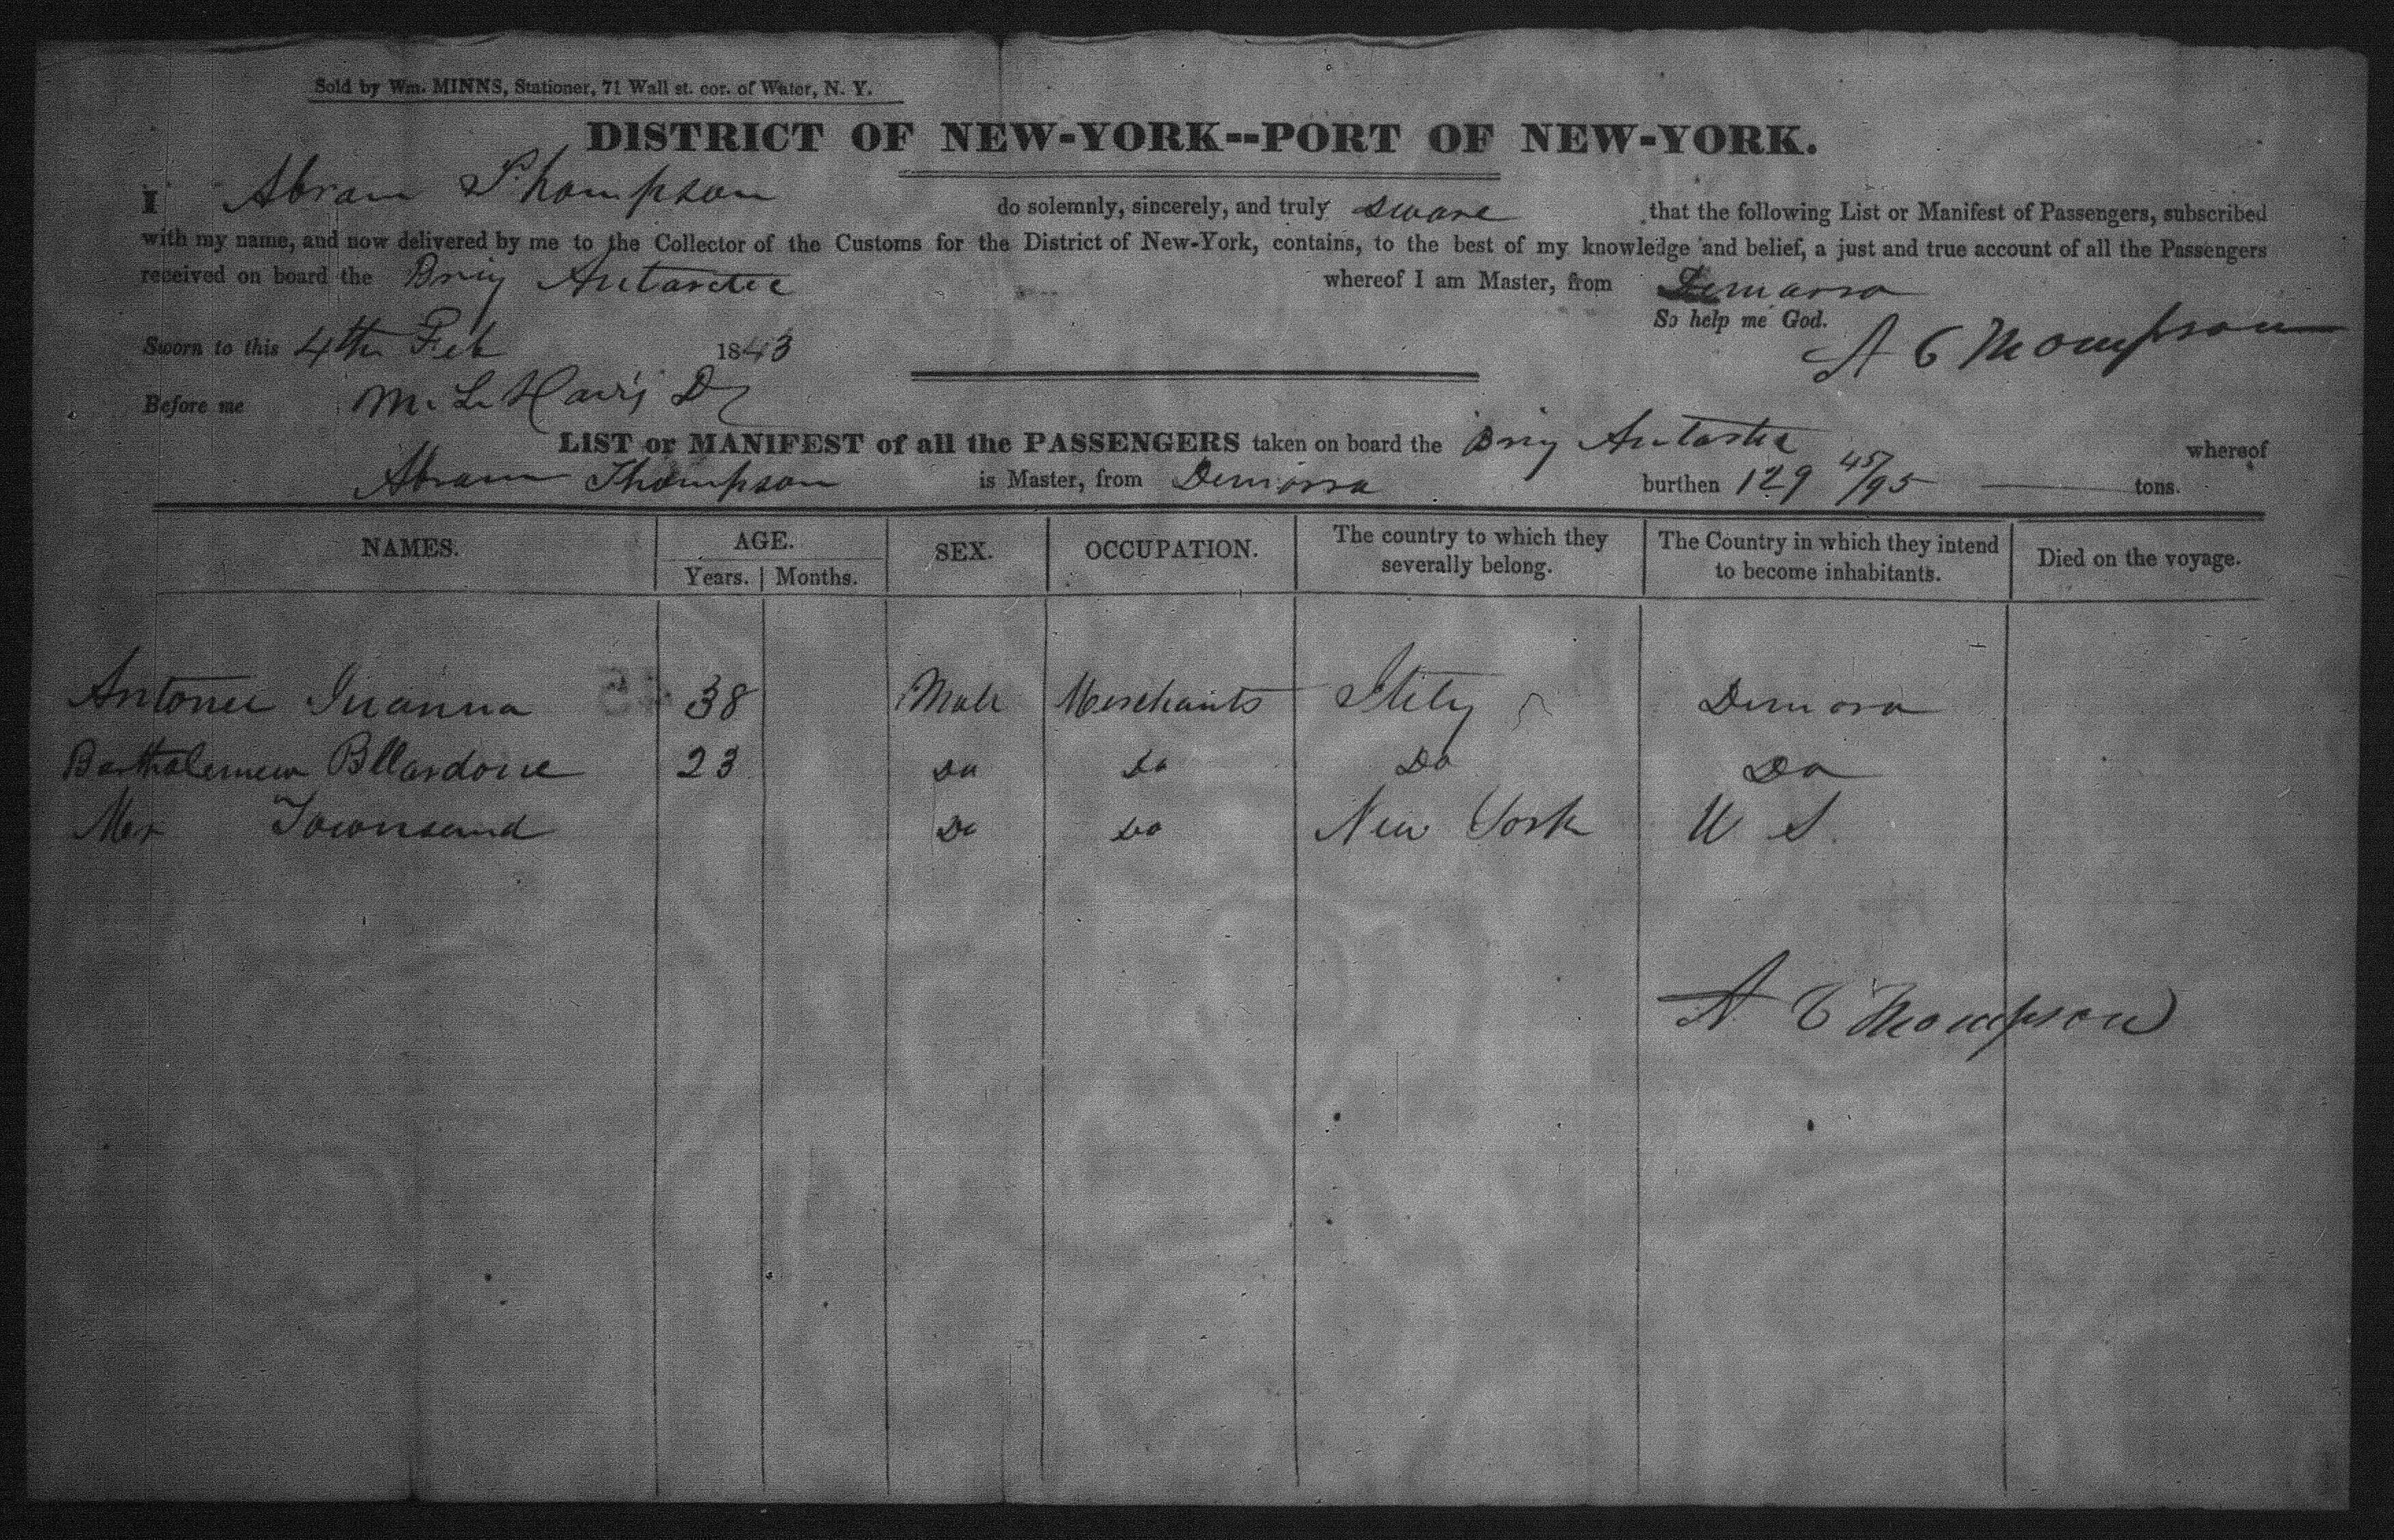 Sold by Wm. MINNS, Stationer, 71 Wall st. cor. of Water, N. Y.
DISTRICT OF NEW-YORK--PORT OF NEW-YORK.
I Abram Thompson do solemnly, sincerely, and truly sware that the following List or Manifest of Passengers, subscribed
with my name, and now delivered by me to the Collector of the Customs for the District of New-York, contains, to the best of my knowledge and belief, a just and true account of all the Passengers
received on board the Brig Antarctic whereof I am Master, from Demarra
So help me God.
Sworn to this 4th Feb 1843 A C Thompson
Before me M. L. Davis
LIST or MANIFEST of all the PASSENGERS taken on board the Brig Antartic whereof
Abram Thompson is Master, from Demarra burthen 129 45/95 tons.
NAMES. AGE. SEX. OCCUPATION. The country to which they severally belong. The Country in which they intend to become inhabitants. Died on the voyage.
Years. Months.
38 Male Merchants Itily Demora
Bartholemew 23 Do Do Do Do
Mr Townsend Do Do New York U S.
A C Thompson